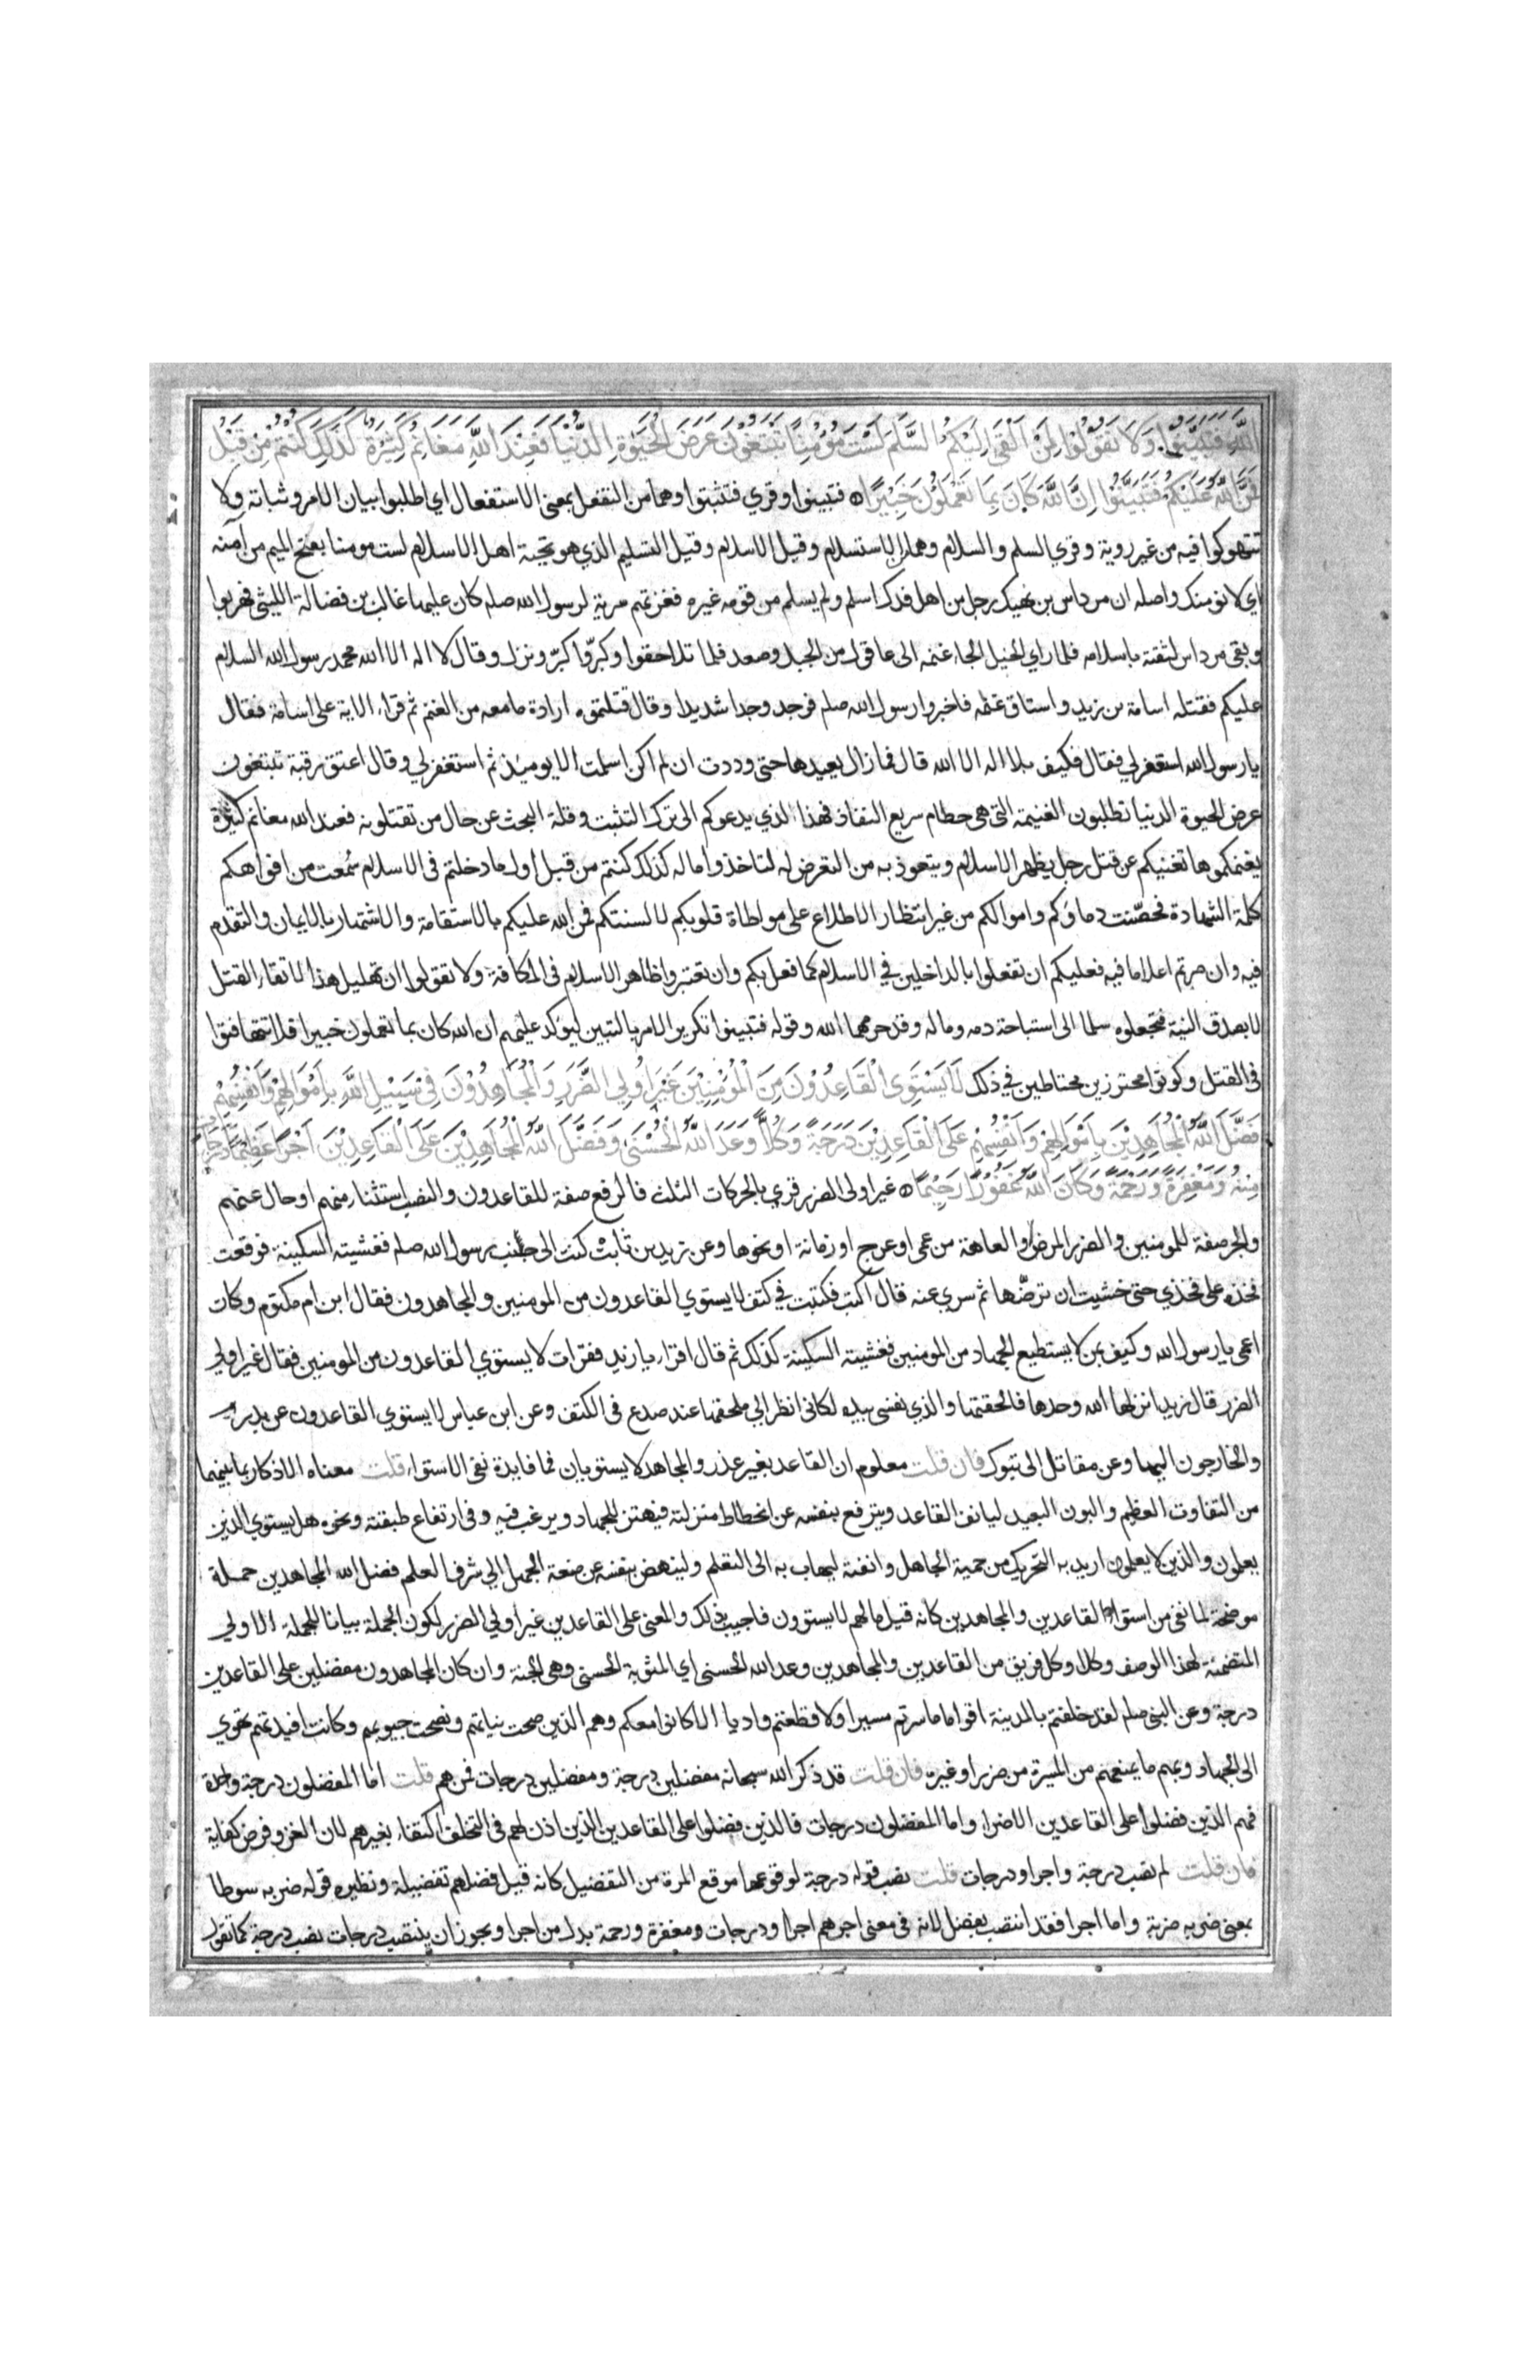 اللَّهِ فَتَبَيَّنُوا وَلَا تَقُولُوا لِمَنْ أَلْقَى إِلَيْكُمُ السَّلَمَ لَسْتَ مُؤْمِنًا تَبْتَغُونَ عَرَضَ الْحَيٰوةِ الدُّنْيَا فَعِنْدَ اللَّهِ مَغَانِمُ كَثِيرَةٌ كَذَلِكَ كُنْتُمْ مِنْ قَبْلُ
فَمَنَّ اللَّهُ عَلَيْكُمْ فَتَبَيَّنُوا إِنَّ اللَّهَ كَانَ بِمَا تَعْمَلُونَ خَبِيرًا ٥ فتبينوا وقري فتثبتوا وهما من التفعل بمعنى الاستفعال اي اطلبوا بيان الامر وثباته ولا
تتهوكوا فيه من غير روية وقري السلم والسلام وهما الاستسلام وقيل الاسلام وقيل التسليم الذي هو تحية اهل الاسلام لست مومنا بفتح الميم من آمنه
اي لا نومنك واصله ان مرداس بن نهيك رجل من اهل فدك اسلم ولم يسلم من قومه غيره فغزتهم سرية لرسول الله صلم كان عليها غالب بن فضالة الليثي فهربوا
وبقي مرداس لثقته باسلامه فلما راي الخيل الجاء غنمه الى عاقول من الجبل وصعد فلما تلاحقوا وكبروا كبر ونزل وقال لا اله الا الله محمد رسول الله السلام
عليكم فقتله اسامة بن زيد واستاق غنمه فاخبروا رسول الله صلم فوجد وجدا شديدا وقال قتلتموه ارادة ما معه من الغنم ثم قراء الاية على اسامة فقال
يا رسول الله استغفر لي فقال فكيف بلا اله الا الله قال فما زال يعيدها حتى وددت ان لم اكن اسلمت الا يوميذ ثم استغفر لي وقال اعتق رقبة تبتغون
عرض الحيوة الدنيا تطلبون الغنيمة التي هي حطام سريع النفاذ فهذا الذي يدعوكم الى ترك التثبت وقلة البحث عن حال من تقتلونه فعند الله مغانم كثيرة
يغنمكموها تغنيكم عن قتل رجل يظهر الاسلام ويتعوذ به من التعرض له لتاخذوا ماله كذلك كنتم من قبل أول ما دخلتم في الاسلام سُمعت من افواهكم
كلمة الشهادة فحصّنت دماؤكم واموالكم من غير انتظار الاطلاع على مواطاة قلوبكم لالسنتكم فمن الله عليكم بالاستقامة والاشتهار بالايمان والتقدم
فيه وان صرتم اعلاما فيه فعليكم ان تفعلوا بالداخلين في الاسلام كما فعل بكم وان تعتبروا ظاهر الاسلام في المكافة ولا تقولوا ان تهليل هذا لاتقاء القتل
لا بصدق النية فتجعلوه سلما الى استباحة دمه وماله وقد حرمهما الله وقوله فتبينوا تكرير الامر بالتبين ليوكد عليهم ان الله كان بما تعملون خبيرا فلا تتهافتوا
في القتل وكونوا محترزين محتاطين في ذلك لَا يَسْتَوِي الْقَاعِدُونَ مِنَ الْمُؤْمِنِينَ غَيْرُ أُولِي الضَّرَرِ وَالْمُجَاهِدُونَ فِي سَبِيلِ اللَّهِ بِأَمْوَالِهِمْ وَأَنْفُسِهِمْ
فَضَّلَ اللَّهُ الْمُجَاهِدِينَ بِأَمْوَالِهِمْ وَأَنْفُسِهِمْ عَلَى الْقَاعِدِينَ دَرَجَةً وَكُلًّا وَعَدَ اللَّهُ الْحُسْنَى وَفَضَّلَ اللَّهُ الْمُجَاهِدِينَ عَلَى الْقَاعِدِينَ أَجْرًا عَظِيمًا دَرَجَاتٍ
مِنْهُ وَمَغْفِرَةً وَرَحْمَةً وَكَانَ اللَّهُ غَفُورًا رَحِيمًا ٥ غير اولى الضرر قري بالحركات الثلث فالرفع صفة للقاعدون والنصب استثناء منهم او حال عنهم
والجر صفة للمومنين والضرر المرض او العاهة من عمى او عرج او زمانة او نحوها وعن زيد بن ثابت كنت الى جنب رسول الله صلم فغشيته السكينة فوقعت
فخذه على فخذي حتى خشيت ان ترضّها ثم سري عنه قال اكتب فكتبت في كتف لا يستوي القاعدون من المومنين والمجاهدون فقال ابن ام مكتوم وكان
اعمى يا رسول الله وكيف بمن لا يستطيع الجهاد من المومنين فغشيته السكينة كذلك ثم قال اقراء يا زيد فقرات لا يستوي القاعدون من المومنين فقال غير اولي
الضرر قال زيد انزلها الله وحدها فالحقتها والذي نفسي بيده لكاني انظر الى ملحقها عند صدع في الكتف وعن ابن عباس لا يستوي القاعدون عن بدر
والخارجون اليها وعن مقاتل الى تبوك فان قلت معلوم ان القاعد بغير عذر والمجاهد لا يستويان فما فايدة نفي الاستواء قلت معناه الاذكار بما بينهما
من التفاوت العظيم والبون البعيد ليانف القاعد ويترفع بنفسه عن انحطاط منزلته فيهتز للجهاد ويرغب فيه وفي ارتفاع طبقته ونحوه هل يستوي الذين
يعلمون والذين لا يعلمون اريد به التحريك من حمية الجاهل وانفته ليهاب به الى التعلم ولينهض بنفسه عن صفة الجهل الى شرف العلم فضل الله المجاهدين جملة
موضحة لما نفى من استواء القاعدين والمجاهدين كانه قيل ما لهم لا يستوون فاجيب بذلك والمعنى على القاعدين غير اولي الضرر لكون الجملة بيانا للجملة الاولي
المتضمنة لهذا الوصف وكلا وكل فريق من القاعدين والمجاهدين وعد الله الحسنى اي المثوبة الحسنى وهي الجنة وان كان المجاهدون مفضلين على القاعدين
درجة وعن النبي صلم لقد خلفتم بالمدينة اقواما ما سرتم مسيرا ولا قطعتم واديا الا كانوا معكم وهم الذين صحت نياتهم ونصحت جيوبهم وكانت افيدتهم تهوي
الى الجهاد وبهم ما يمنعهم من المسيرة من ضرر او غيره فان قلت قد ذكر الله سبحانه مفضلين درجة ومفضلين درجات فمن هم قلت اما المفضلون درجة واحدة
فهم الذين فضلوا على القاعدين الاضرا واما المفضلون درجات فالذين فضلوا على القاعدين الذين اذن لهم في التخلف اكتفاء بغيرهم لان الغزو فرض كفاية
فان قلت لم نصب درجة واجرا ودرجات قلت نصب قوله درجة لوقوعها موقع المرة من التفضيل كانه قيل فضلهم تفضيلة ونظيره قوله ضربه سوطا
بمعنى ضربه ضربة واما اجرا فقد انتصب بفضل لانه في معنى اجرهم اجرا ودرجات ومغفرة ورحمة بدل من اجرا ويجوز ان ينتصب درجات نصب درجة كما تقول